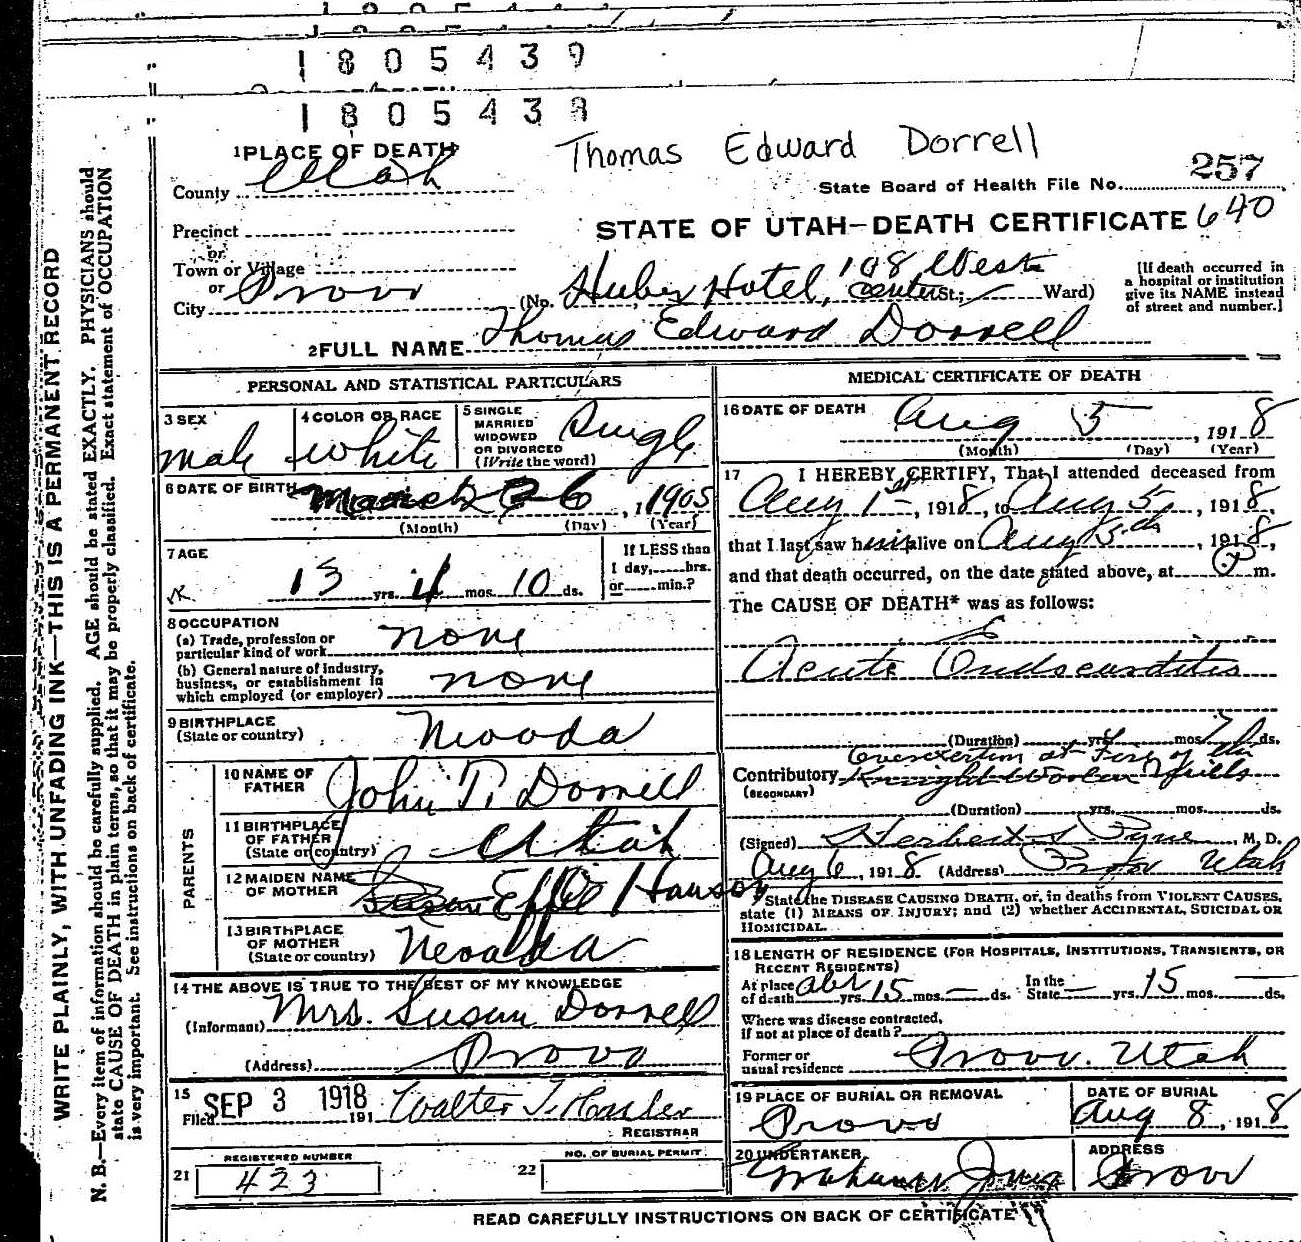 1805439
1805439
Thomas Edward Dorrell
1 PLACE OF DEATH
County Utah
State Board of Health File No. 257
Precinct
STATE OF UTAH—DEATH CERTIFICATE 640
or
Town or Village
or
City Provo
(No. Huber Hotel, 108 West Center St.; Ward)
[If death occurred in a hospital or institution give its NAME instead of street and number.]
2 FULL NAME Thomas Edward Dorrell
PERSONAL AND STATISTICAL PARTICULARS
3 SEX male
4 COLOR OR RACE white
5 SINGLE MARRIED WIDOWED OR DIVORCED (Write the word) Single
6 DATE OF BIRTH March 26, 1905
(Month) (Day) (Year)
7 AGE
13 yrs. 4 mos. 10 ds.
If LESS than 1 day, hrs. or min.?
8 OCCUPATION
(a) Trade, profession or particular kind of work none
(b) General nature of industry, business, or establishment in which employed (or employer) none
9 BIRTHPLACE
(State or country) Nevada
PARENTS
10 NAME OF FATHER John T. Dorrell
11 BIRTHPLACE OF FATHER (State or country) Utah
12 MAIDEN NAME OF MOTHER Susan Effie Hanson
13 BIRTHPLACE OF MOTHER (State or country) Nevada
14 THE ABOVE IS TRUE TO THE BEST OF MY KNOWLEDGE
(Informant) Mrs. Susan Dorrell
(Address) Provo
15 Filed SEP 3 1918 191 Walter T. Hasler
REGISTRAR
REGISTERED NUMBER
21 423
NO. OF BURIAL PERMIT
22
MEDICAL CERTIFICATE OF DEATH
16 DATE OF DEATH Aug 5, 1918
(Month) (Day) (Year)
17 I HEREBY CERTIFY, That I attended deceased from
Aug 1st, 1918, to Aug 5, 1918,
that I last saw him alive on Aug 5th, 1918,
and that death occurred, on the date stated above, at m.
The CAUSE OF DEATH* was as follows:
Acute Endocarditis
(Duration) yrs. mos. 7 ds.
Contributory Overexertion at Fire of the
(SECONDARY) Knight Woolen Mills
(Duration) yrs. mos. ds.
(Signed) Herbert S. Pyne M. D.
Aug 6, 1918 (Address) Provo Utah
*State the DISEASE CAUSING DEATH, or, in deaths from VIOLENT CAUSES, state (1) MEANS OF INJURY; and (2) whether ACCIDENTAL, SUICIDAL OR HOMICIDAL.
18 LENGTH OF RESIDENCE (FOR HOSPITALS, INSTITUTIONS, TRANSIENTS, OR RECENT RESIDENTS)
At place of death abt yrs. 15 mos. — ds. In the State — yrs. 15 mos. — ds.
Where was disease contracted, if not at place of death?
Former or usual residence Provo. Utah
19 PLACE OF BURIAL OR REMOVAL Provo
DATE OF BURIAL Aug 8, 1918
20 UNDERTAKER
ADDRESS Provo
READ CAREFULLY INSTRUCTIONS ON BACK OF CERTIFICATE
WRITE PLAINLY, WITH UNFADING INK—THIS IS A PERMANENT RECORD
N. B.—Every item of information should be carefully supplied. AGE should be stated EXACTLY. PHYSICIANS should
state CAUSE OF DEATH in plain terms, so that it may be properly classified. Exact statement of OCCUPATION
is very important. See instructions on back of certificate.